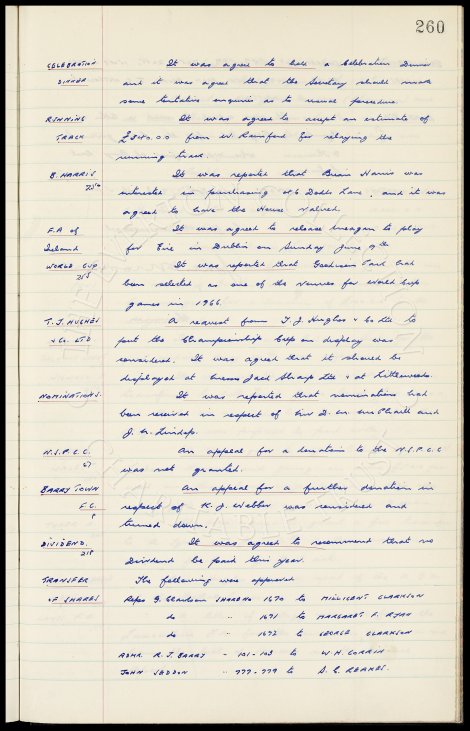 260
CELEBRATION It was agreed to hold a Celebration Dinner
DINNER and it was agreed that the Secretary should make
some tentative enquiries as to usual procedure.
RUNNING It was agreed to accept an estimate of
TRACK £540.00 from W. Rainford for relaying the
running track.
B. HARRIS It was reported that Brian Harris was
254 interested in purchasing 46 Dodds Lane, and it was
agreed to have the House Valued.
F.A of It was agreed to release Meagan to play
Ireland for Eire in Dublin on Sunday June 9th
WORLD CUP It was reported that Goodison Park had
255 been selected as one of the Venues for World Cup
games in 1966.
T. J. HUGHES A request from T. J. Hughes & Co Ltd to
& Co. LTD put the Championship Cup on display was
considered. It was agreed that it should be
displayed at Messrs Jack Sharp Ltd & at Littlewoods.
NOMINATIONS. It was reported that nominations had
been received in respect of
J.
N.S.P.C.C. An appeal for a donation to the N.S.P.C.C
67 was not granted.
BARRY TOWN An appeal for a further donation in
F.C. respect of K. J. Webber was considered and
turned down.
DIVIDEND. It was agreed to recommend that no
218 Dividend be paid this year.
TRANSFER The following was approved
OF SHARES Repes G. Clarkson SHARE No 1670 to MILLICENT CLARKSON
do " 1671 to MARGARET F. RYAN
do " 1672 to GEORGE CLARKSON
ADMR. R. J. BARRY - 101-103 to W. H. CORRIN
JOHN SEDDON " 777-779 to